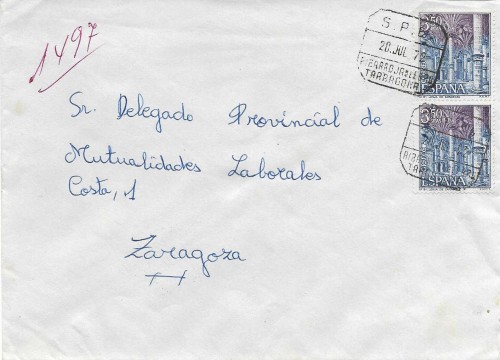 1497
Sr. Delegado Provincial de
Mutualidades Laborales
Costa, 1
Zaragoza
S. P.
20 JUL 7
TARRAGONA
3,50
ESPAÑA
3,50
ESPAÑA